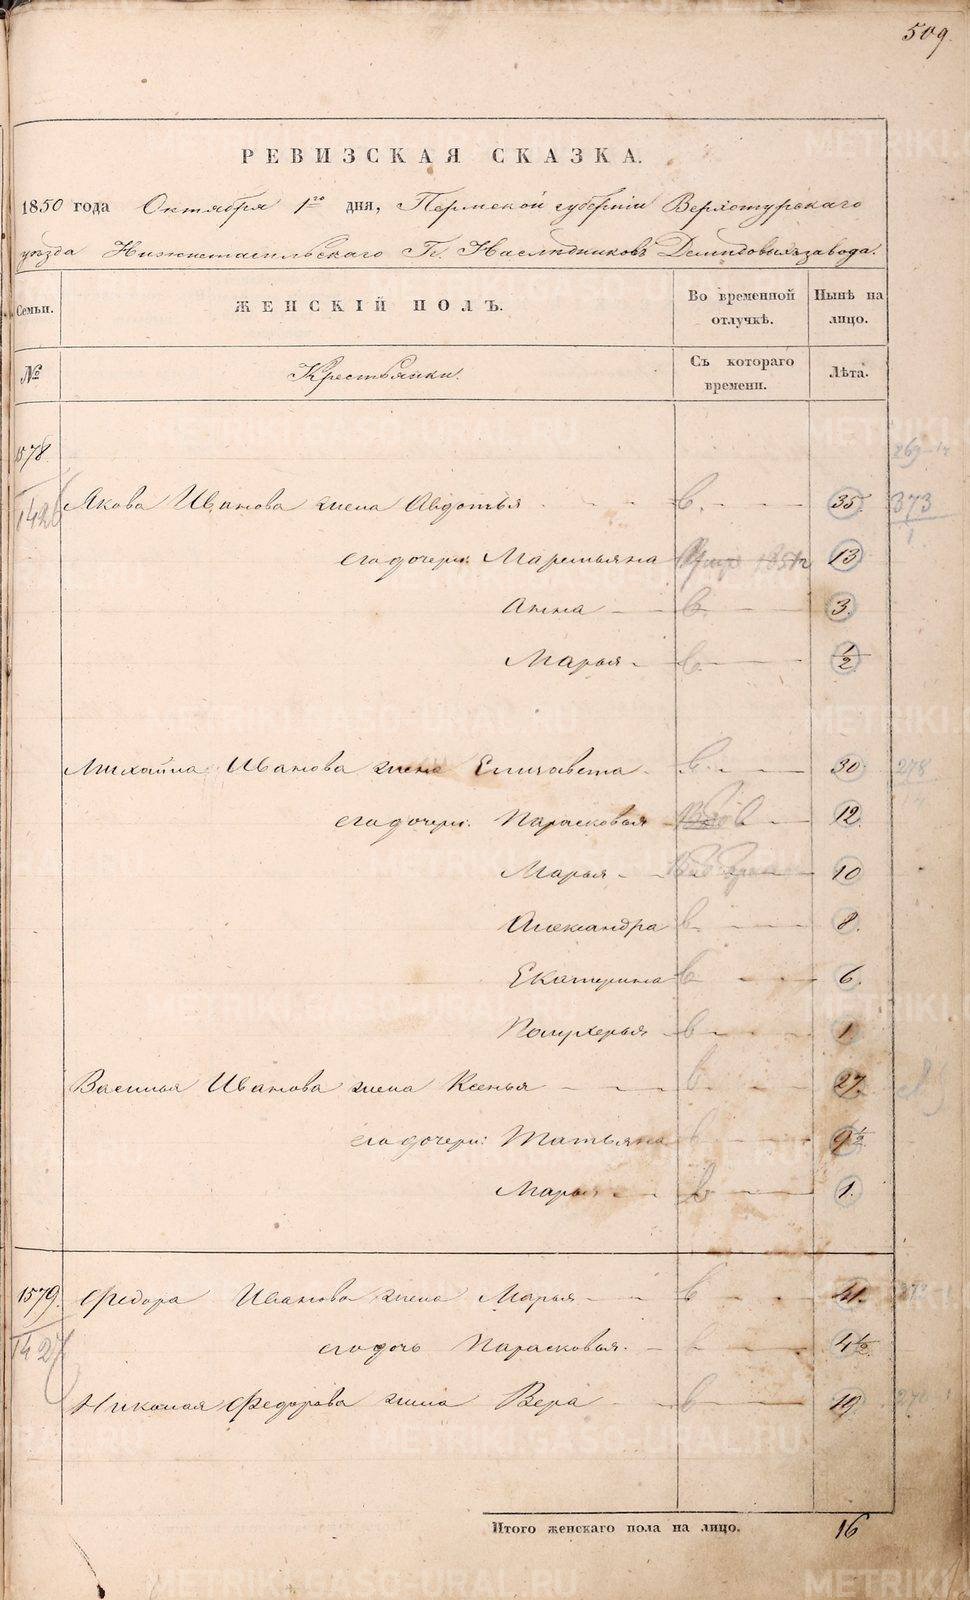 509.
РЕВИЗСКАЯ СКАЗКА.
1850 года Октября 1го дня, Пермской губерніи Верхотурскаго
уѣзда Нижнетагильскаго Гг. Наслѣдниковъ Демидовыхъ завода.
Семьи. ЖЕНСКІЙ ПОЛЪ. Во временной отлучкѣ. Нынѣ на лицо.
№ Крестьянки. Съ котораго времени. Лѣта.
1578.
1426 Якова Иванова жена Авдотья в. 35. 373
1
его дочери: Маремьяна 13
Анна в 3.
Марья в 1/2
Михайла Иванова жена Елизавета в. 30. 278
его дочери: Парасковья 12.
Марья 10
Александра в 8.
Екатерина в 6.
Полухерья в 1.
Василья Иванова жена Ксенья в 27.
его дочери: Татьяна в 9 1/2
Марья в 1.
1579. Федора Иванова жена Марья в 41.
1427 его дочь Парасковья. в 4 1/2.
Николая Федорова жена Вера в 19.
Итого женскаго пола на лицо. 16
METRIKI.GASO-URAL.RU